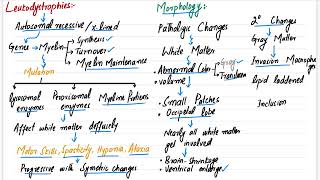 Leukodystrophies:-
Autosomal recessive / x lined
Genes → Myelin
Synthesis
Turnover
Myelin Maintenance
Mutation
Lysosomal enzymes
Proxisomal enzymes
Myeline Protiens
Affect white matter diffusely
Motor Skills, Spasticity, Hyponia, Ataxia
Progressive with Symetric changes
Morphology:-
Pathologic Changes
White Matter
Abnormal Color
Gray
Translucen
• volume ↓
• Small Patches
• Occipetal lobe
Nearly all white matter
get involved
• Brain-Shrinkage
• Ventrical enlarge
2° Changes
Gray Matter
Invasion Macrophage
lipid laddened
Inclusion